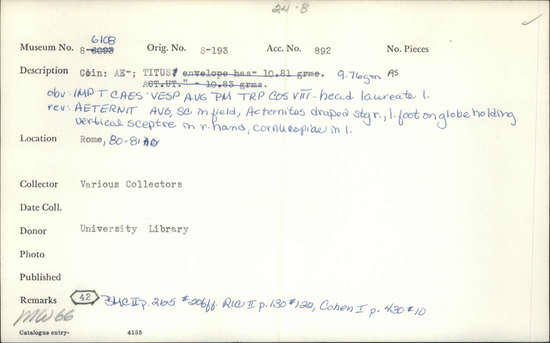 24-8
Museum No. 8-6093 6108 Orig. No. 8-193 Acc. No. 892 No. Pieces
Description Coin: AE-; TITUS envelope has- 10.81 grms. 9.76gm AS
ACT.UT." - 10.83 grms.
obv: IMP T CAES VESP AVG PM TRP COS VIII - head laureate l.
rev: AETERNIT AVG, SC in field, Aeternitas draped stg r., l. foot on globe holding
vertical sceptre in r. hand, cornucopiae in l.
Location Rome, 80-81 AD
Collector Various Collectors
Date Coll.
Donor University Library
Photo
Published
Remarks 42 BMC II p. 265 #206ff. RIC II p. 130 #122, Cohen I p. 430 #10
MW66
Catalogue entry- 4185